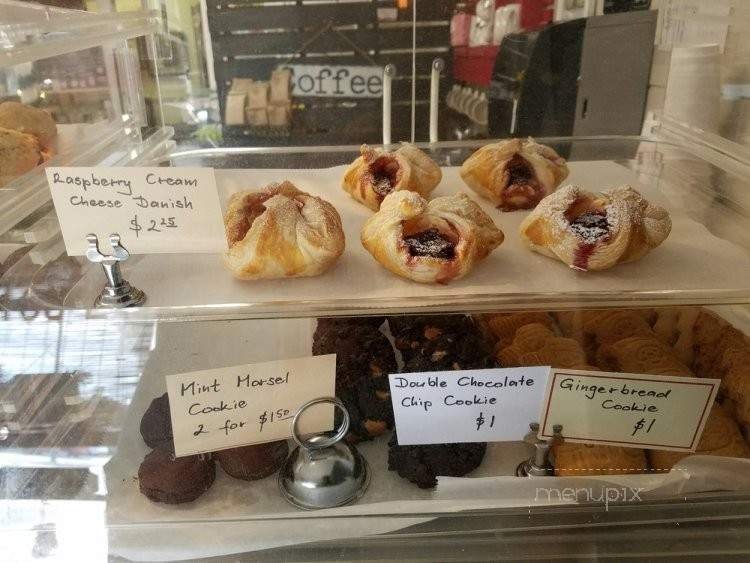 Coffee
Raspberry Cream
Cheese Danish
$2.25
Mint Morsel
Cookie
2 for $1.50
Double Chocolate
Chip Cookie
$1
Gingerbread
Cookie
$1
menupix